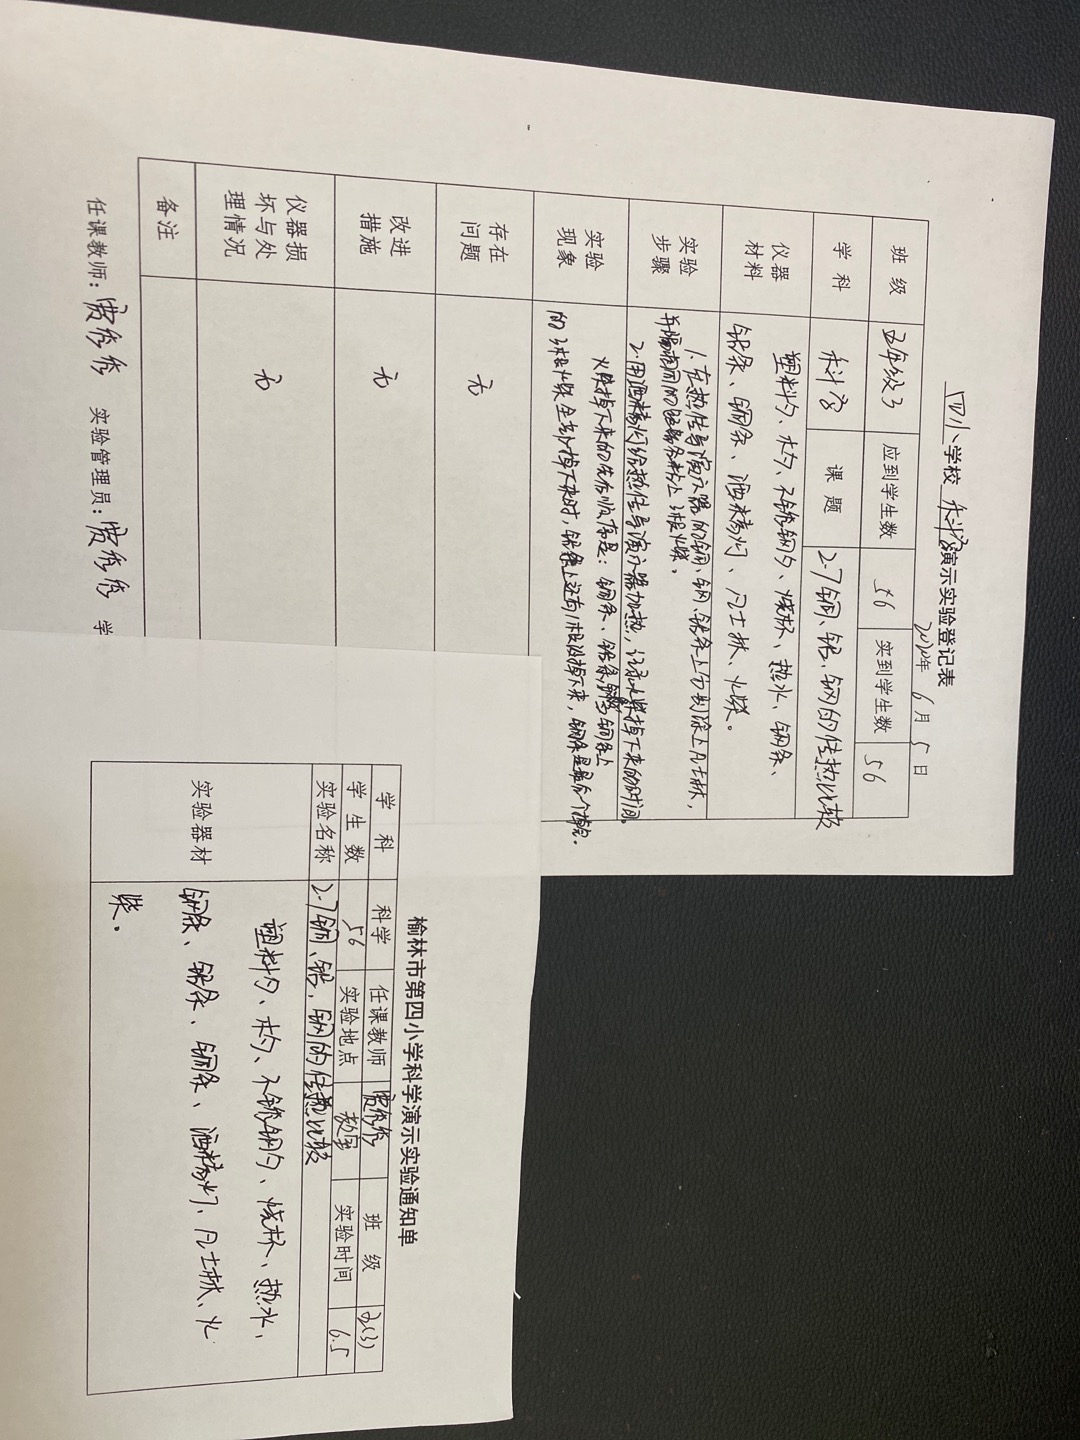 四小学校 科学演示实验登记表
6月5日
班级 五年级3 应到学生数 56 实到学生数 56
学科 科学 课题 2.7铜、铝、钢的传热比较
仪器材料 塑料勺、木勺、不锈钢勺、烧杯、热水、钢条、
铝条、铜条、酒精灯、凡士林、火柴。
实验步骤 1.在热传导演示器的铜、钢、铝条上分别涂上凡士林,
并隔相同的距离粘上3根火柴。
2.用酒精灯给热传导演示器加热,记录火柴掉下来的时间。
实验现象 火柴掉下来的先后顺序是:铜条、铝条、钢条
的3根火柴全部掉下来时,铝条上还有1根没掉下来,
存在问题 无
改进措施 无
仪器损坏与处理情况 无
备注
任课教师: 实验管理员: 学
榆林市第四小学科学演示实验通知单
学科 科学 任课教师 班级 五(3)
学生数 56 实验地点 教室 实验时间 6.5
实验名称 2.7铜、铝、钢的传热比较
实验器材 塑料勺、木勺、不锈钢勺、烧杯、热水、
钢条、铝条、铜条、酒精灯、凡士林、火
柴。